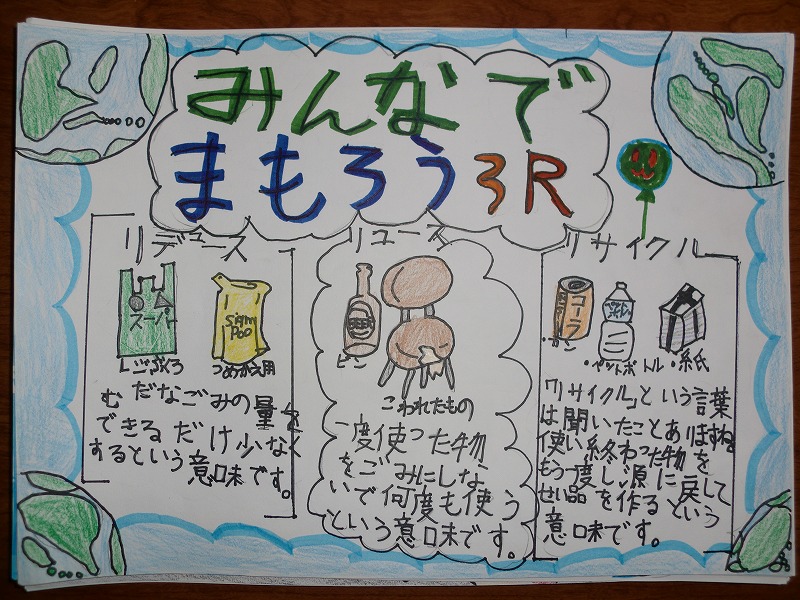 みんなで
まもろう3R
リデュース
スーパー
レジぶくろ
つめかえ用
むだなごみの量を
できるだけ少なく
するという意味です。
リユース
BEER
ビン
こわれたもの
一度使った物
をごみにしな
いで何度も使う
という意味です。
リサイクル
コーラ
・カン
・ペットボトル
・紙
「リサイクル」という言葉
は聞いたことありますね。
使い終わった物を
もう一度しげ源に戻して
せい品を作るという
意味です。